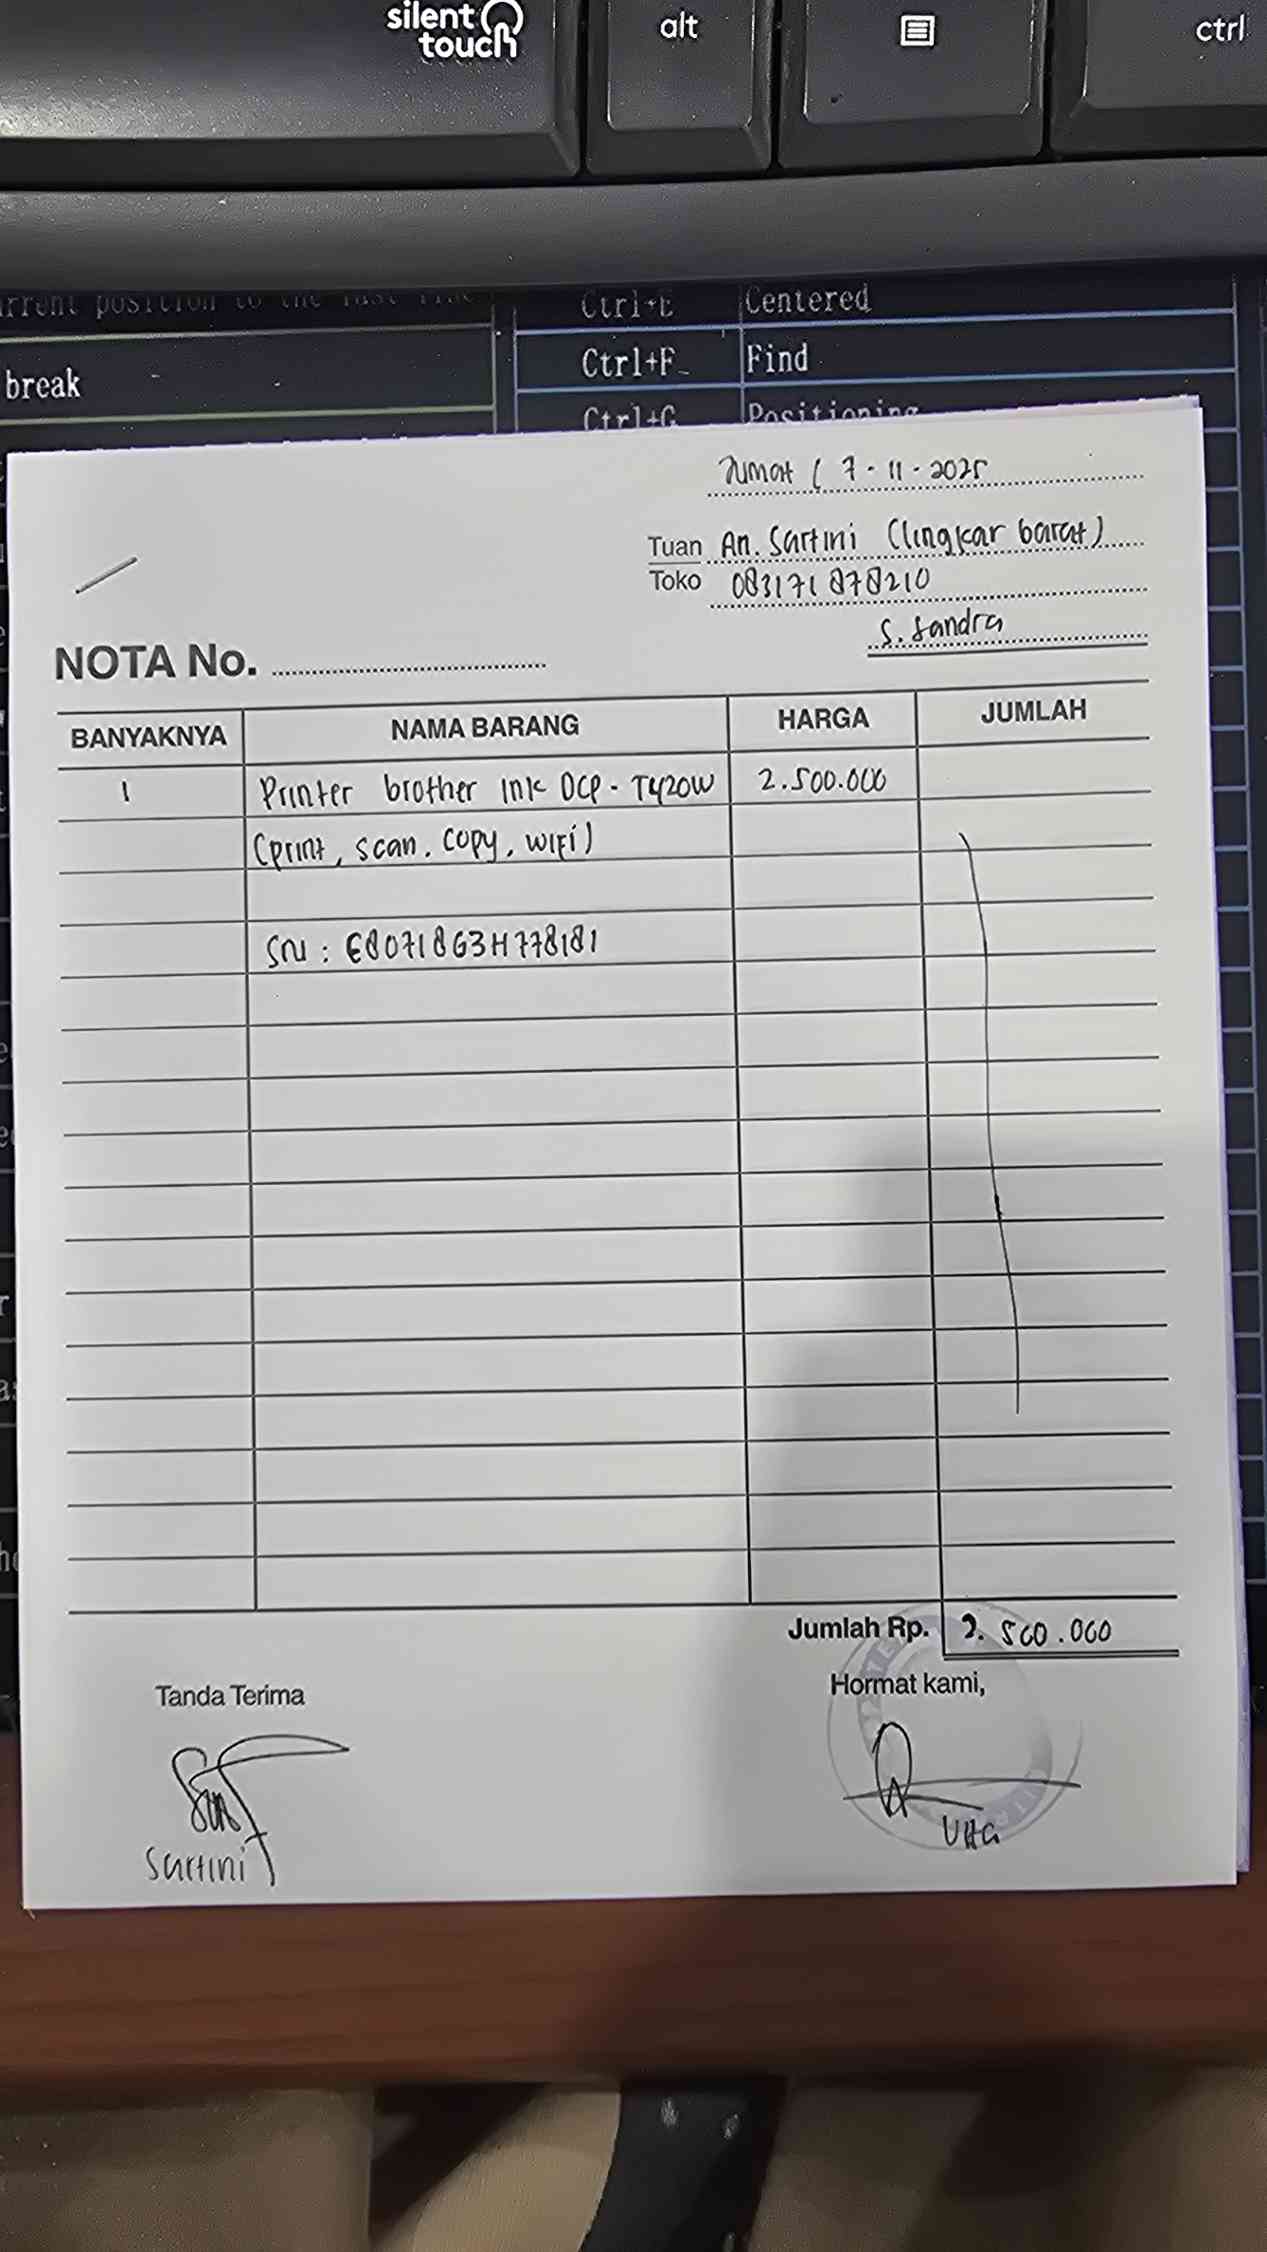 silent
touch
alt
ctrl
Ctrl+E Centered
break
Ctrl+F Find
Ctrl+G Positioning
Jumat ( 7 - 11 - 2025
Tuan An. Sartini (lingkar barat)
Toko 083171878210
S. Sandra
NOTA No.
BANYAKNYA NAMA BARANG HARGA JUMLAH
1 Printer brother Ink DCP - T420W 2.500.000
(print, scan. copy, wifi)
SN : E80718G3H778181
Jumlah Rp. 2. 500.000
Tanda Terima Hormat kami,
Sartini